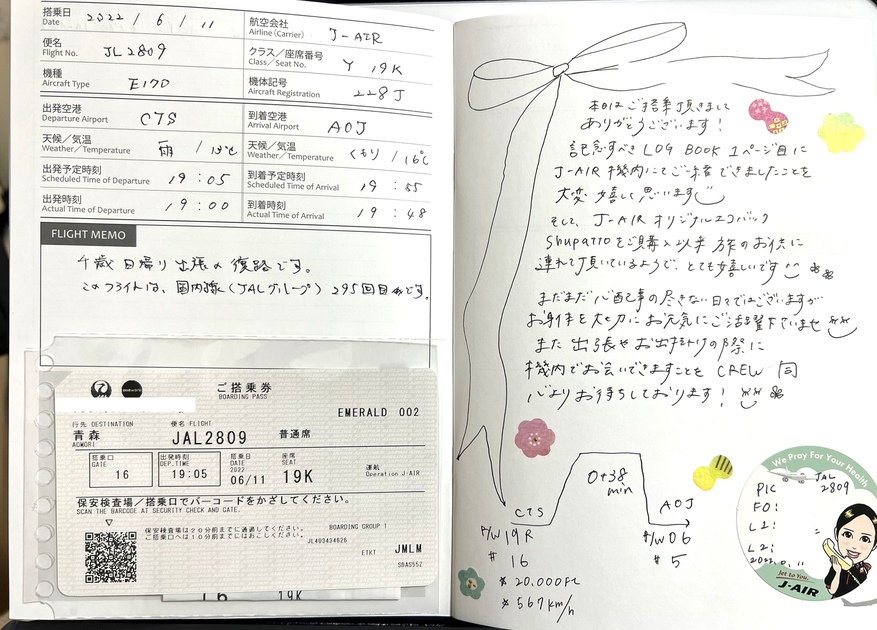 搭乗日 Date 2022 / 6 / 11
航空会社 Airline (Carrier) J-AIR
便名 Flight No. JL2809
クラス/座席番号 Class/Seat No. Y 19K
機種 Aircraft Type E170
機体記号 Aircraft Registration 228J
出発空港 Departure Airport CTS
到着空港 Arrival Airport AOJ
天候/気温 Weather/Temperature 雨 / 13℃
天候/気温 Weather/Temperature くもり / 16℃
出発予定時刻 Scheduled Time of Departure 19:05
到着予定時刻 Scheduled Time of Arrival 19:55
出発時刻 Actual Time of Departure 19:00
到着時刻 Actual Time of Arrival 19:48
FLIGHT MEMO
千歳日帰り出張の復路です。
このフライトは、国内線(JALグループ)295回目です。
ご搭乗券
BOARDING PASS
EMERALD 002
行先 DESTINATION
青森
AOMORI
便名 FLIGHT
JAL2809
普通席
搭乗口
GATE
16
出発時刻
DEP.TIME
19:05
搭乗日
DATE
2022
06/11
座席
SEAT
19K
運航
Operation J-AIR
保安検査場/搭乗口でバーコードをかざしてください。
SCAN THE BARCODE AT SECURITY CHECK AND GATE.
保安検査場は20分前までに通過してください。
ご搭乗口へは10分前までにおこしください。
BOARDING GROUP 1
JL403434626
ETKT
JMLM
16
19K
本日はご搭乗頂きまして
ありがとうございます!
記念すべき LOG BOOK 1ページ目に
J-AIR 機内にてご一緒できましたことを
大変嬉しく思います
そして、J-AIR オリジナルエコバック
Shupattoをご購入以来 旅のお供に
連れて頂いているようで、とても嬉しいです
まだまだ心配事の尽きない日々ではございますが
お身体を大切にお元気にご活躍下さいませ
また出張やお出掛けの際に
機内でお会いできますことを CREW 一同
心よりお待ちしております!
0+38
min
CTS
AOJ
R/W 19R
R/W 06
# 16
# 5
* 20,000ft
* 567km/h
We Pray For Your Health
JAL
2809
PIC
FO:
L1:
L2:
Jet to You.
J-AIR